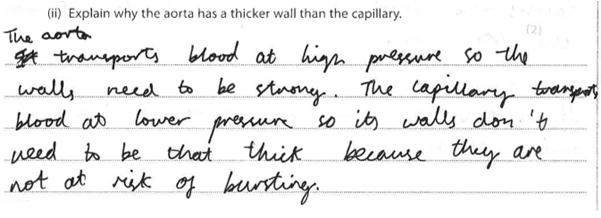 (ii) Explain why the aorta has a thicker wall than the capillary.
(2)
The aorta
transports blood at high pressure so the
walls need to be strong. The capillary transports
blood at lower pressure so its walls don't
need to be that thick because they are
not at risk of bursting.